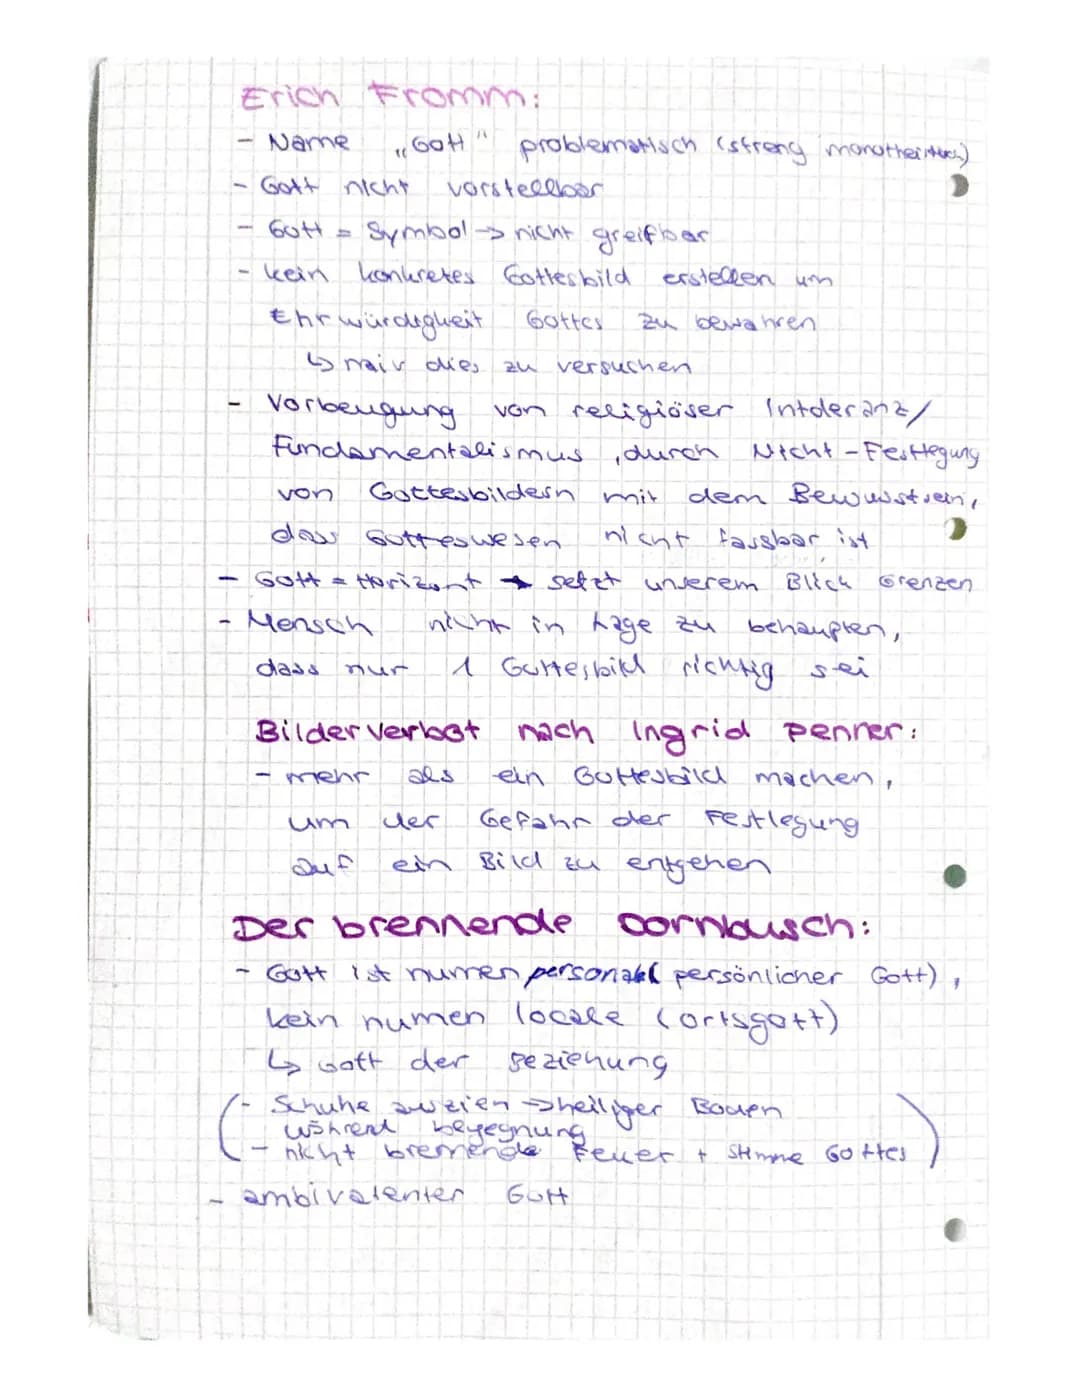 Erich Fromm:
- Name „Gott" problematisch (streng monotheistisch)
- Gott nicht vorstellbar
- Gott = Symbol → nicht greifbar
- kein konkretes Gottesbild erstellen um
Ehrwürdigkeit Gottes zu bewahren
↳ naiv dies zu versuchen
- Vorbeugung von religiöser Intoleranz/
Fundamentalismus, durch Nicht-Festlegung
von Gottesbildern mit dem Bewusstsein,
dass Gotteswesen nicht fassbar ist
- Gott = Horizont → setzt unserem Blick Grenzen
- Mensch nicht in Lage zu behaupten,
dass nur 1 Gottesbild richtig sei
Bilderverbot nach Ingrid Penner:
- mehr als ein Gottesbild machen,
um der Gefahr der Festlegung
auf ein Bild zu entgehen
Der brennende Dornbusch:
- Gott ist numen personale (persönlicher Gott),
kein numen locale (Ortsgott)
↳ Gott der Beziehung
(- Schuhe auszien → heiliger Boden
während begegnung
- nicht brennende Feuer + Stimme Gottes)
- ambivalenter Gott